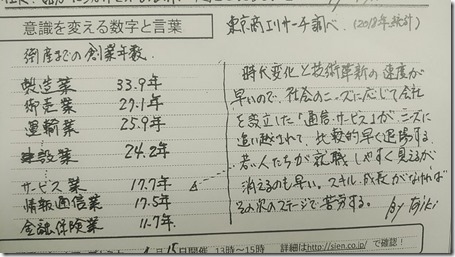 意識を変える数字と言葉
東京商工リサーチ調べ (2018年統計)
倒産までの創業年数
製造業 33.9年
卸売業 27.1年
運輸業 25.9年
建設業 24.2年
サービス業 17.7年
情報通信業 17.5年
金融・保険業 11.7年
時代変化と技術革新の速度が
早いので、社会のニーズに応じて会社
を設立した「通信・サービス」が、ニーズに
追い越まれて、比較的早く退場する。
若い人たちが就職しやすく見えるが
消えるのも早い。スキル・成長がなければ
その次のステージで苦労する。
by Taiki
月15日開催 13時~15時 詳細はhttp://sien.co.jp/ で確認!